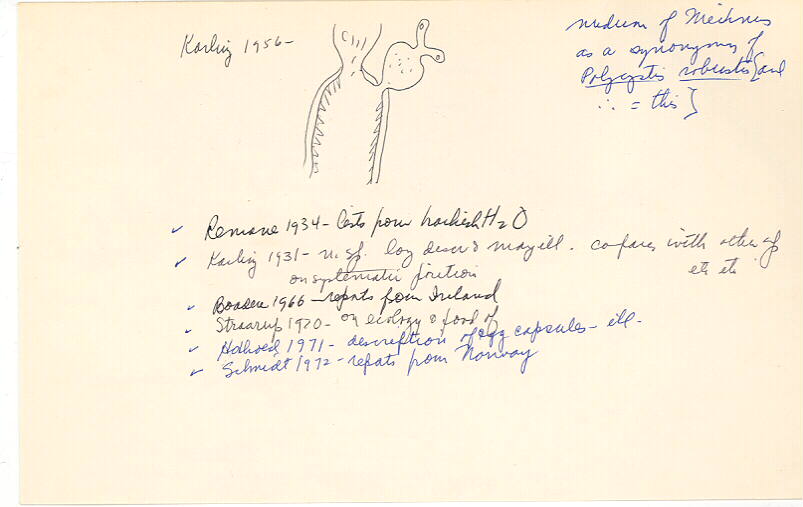 Karling 1956-
medium of Meixner
as a synonym of
Polycystis robusta [and
∴ = this]
Remane 1934 - lists from brackish H2O
Karling 1931 - n. sp. long descr & many ill. compares with other sp
on systematic position etc etc
Boaden 1966 - repats from Ireland
Straarup 1970 - on ecology & food of
Hoxhold 1971 - description of egg capsules - ill.
Schmidt 1972 - repats from Norway